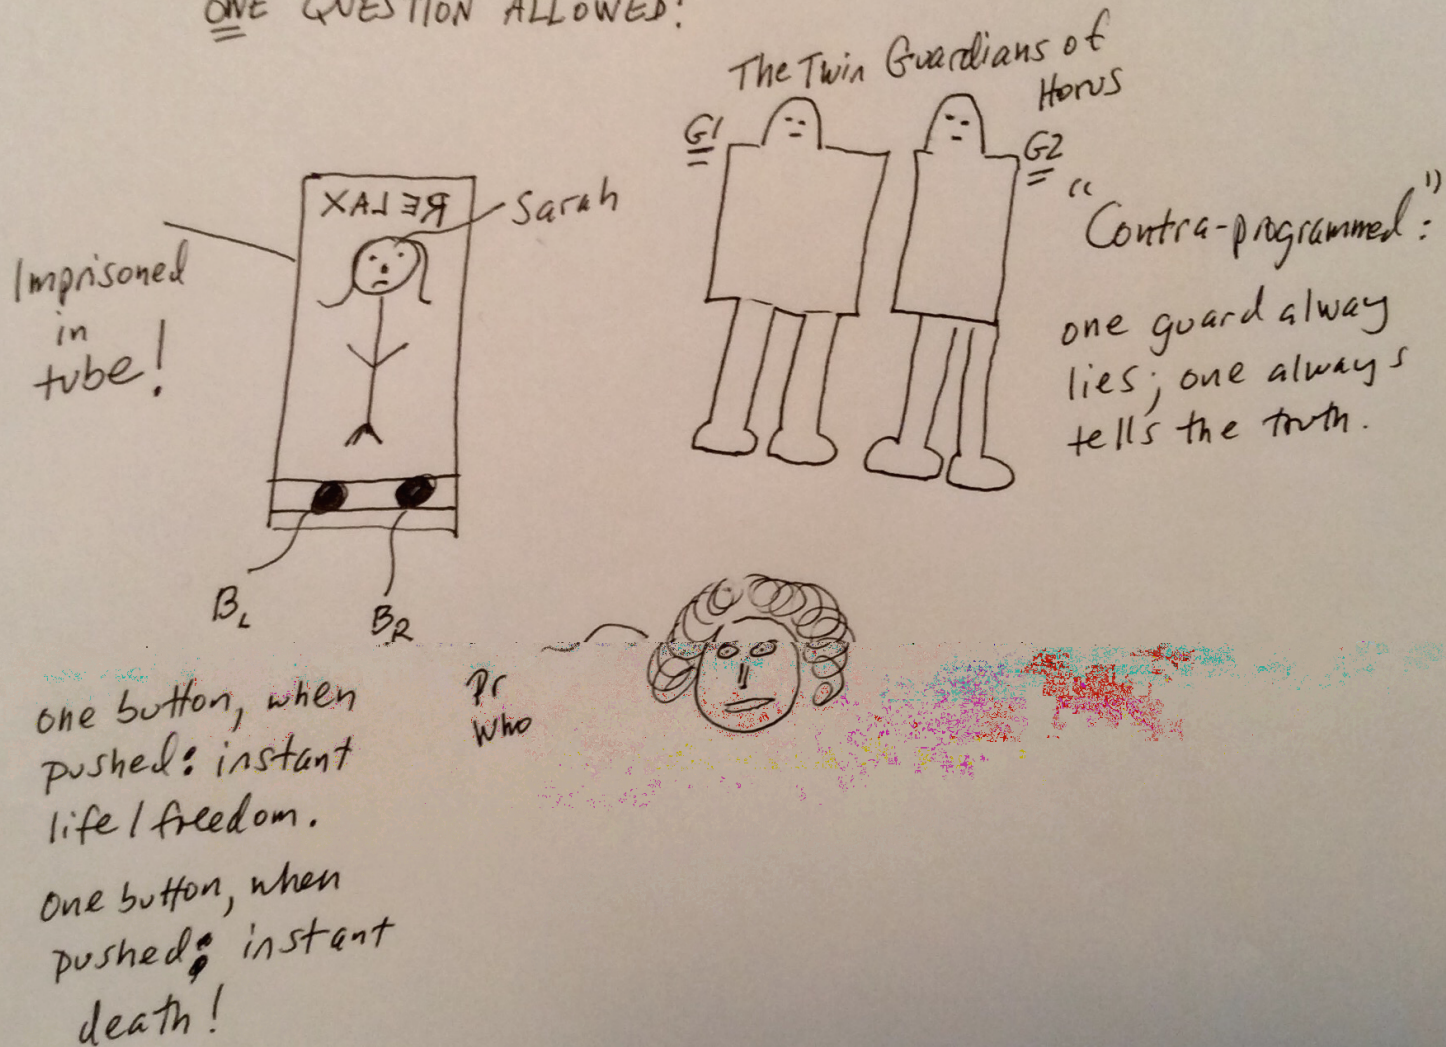 ONE QUESTION ALLOWED:
The Twin Guardians of
Horus
G1
G2
RELAX
Sarah
Imprisoned
in
tube!
"Contra-programmed:"
one guard alway
lies; one always
tells the truth.
BL
BR
Pr
Who
one button, when
pushed: instant
life/freedom.
One button, when
pushed: instant
death!